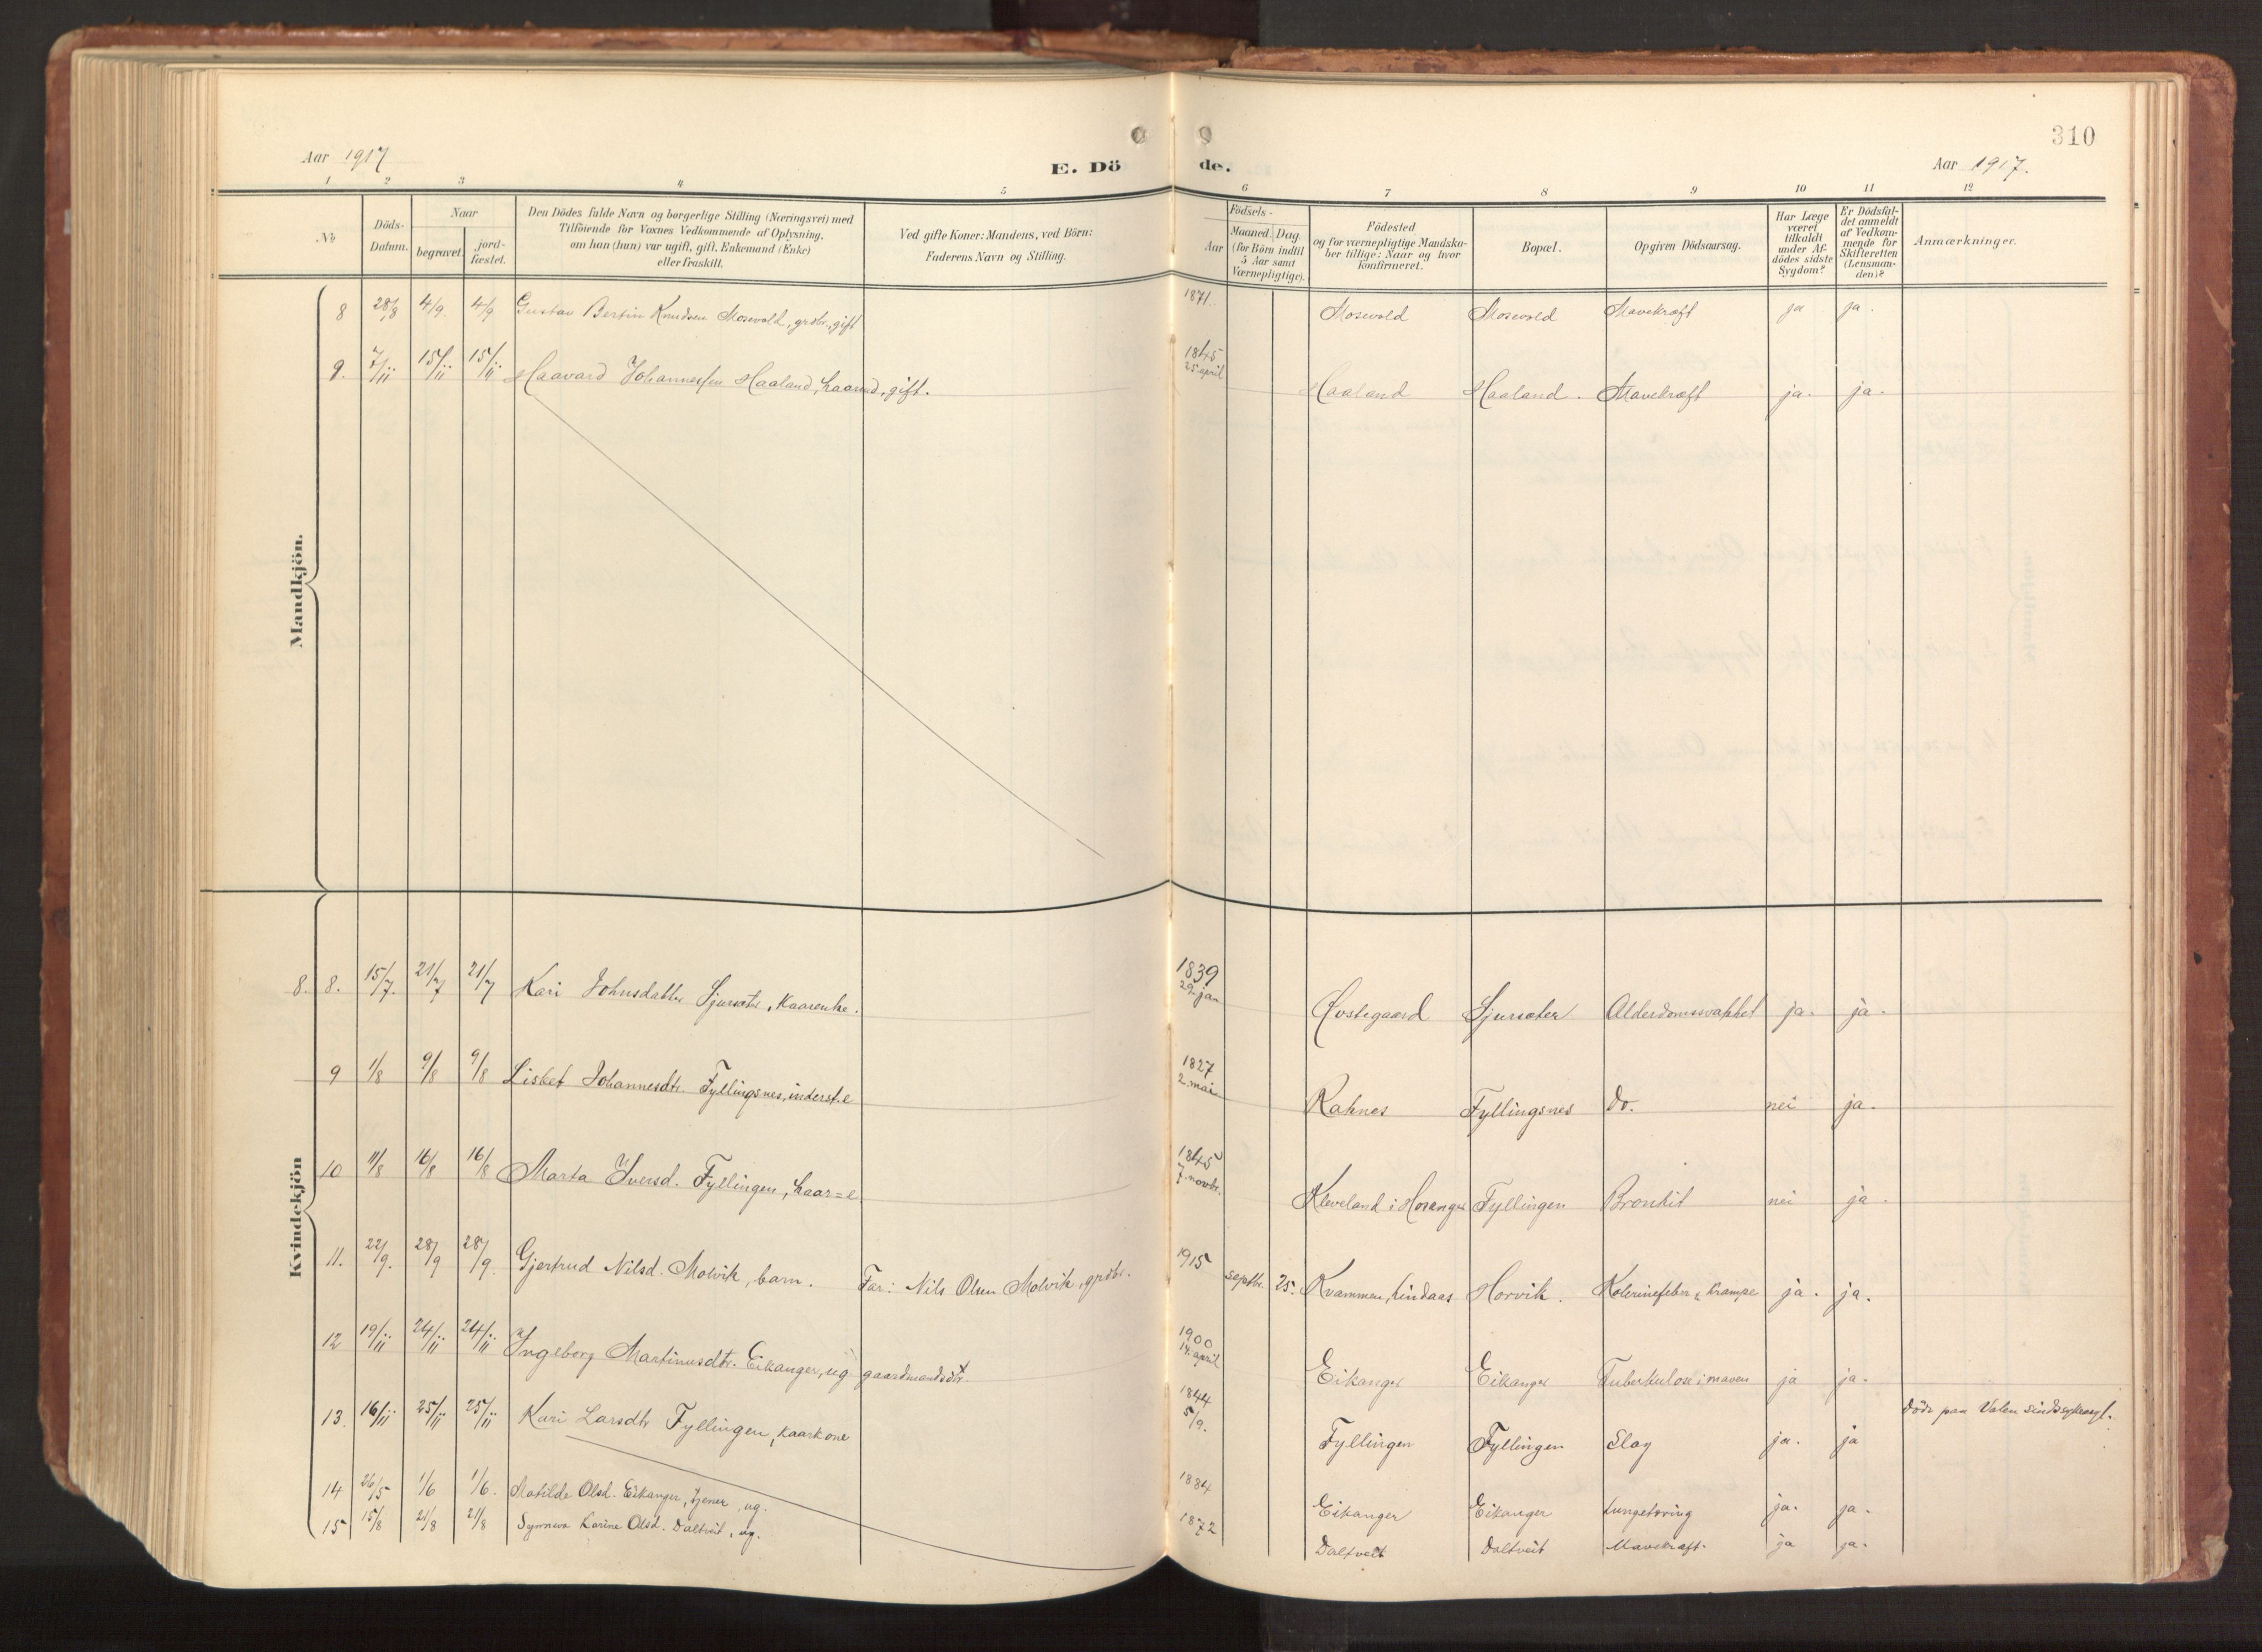 310
Aar 1917
E. Dö de.
Aar 1917.
1 2 3 4 5 6 7 8 9 10 11 12
No
Döds-
Datum.
Naar
begravet.
jord-
fæstet.
Den Dödes fulde Navn og borgerlige Stilling (Næringsvei) med
Tilföiende for Voxnes Vedkommende af Oplysning,
om han (hun) var ugift, gift, Enkemand (Enke)
eller fraskilt.
Ved gifte Koner: Mandens, ved Börn:
Faderens Navn og Stilling.
Födsels-
Aar
Maaned. Dag.
(for Börn indtil
5 Aar samt
Værnepligtige).
Födested
og for værnepligtige Mandska-
ber tillige: Naar og hvor
konfirmeret.
Bopæl.
Opgiven Dödsaarsag.
Har Læge
været
tilkaldt
under Af-
dödes sidste
Sygdom?
Er Dödsfal-
det anmeldt
af Vedkom-
mende for
Skifteretten
(Lensman-
den)?
Anmærkninger.
Mandkjön.
8 28/8 4/9. 4/9 Gustav Bertin Knudsen Mosevold, grdbr., gift 1871. Mosevold Mosevold Mavekræft ja ja.
9. 7/11 15/11 15/11 Haavard Johannessen Haaland, kaarmd, gift. 1845 Haaland Haaland. Mavekræft ja. ja.
25 april
Kvindekjön
8. 8. 15/7. 21/7 21/7 Kari Johnsdatter Sjursæter, kaarenke. 1839 Øvstegaard Sjursæter Alderdomssvakhet ja. ja.
29 jan
9 1/8 9/8 9/8 Lisbet Johannesdtr. Fyllingsnes, inderst.e 1827 Kahnes Fyllingsnes do. nei ja.
2. mai
10 11/8 16/8 16/8 Marta Iversd. Fyllingen, kaar=e 1845 Kleveland i Hosanger Fyllingen Bronkit nei ja.
7. novbr.
11. 22/9. 28/9 28/9. Gjertrud Nilsd. Molvik, barn. Far: Nils Olsen Molvik, grdbr. 1915 septbr. 25. Kvammen, Lindaas Horvik. Kolerinefeber & krampe ja. ja.
12 19/11 24/11 24/11 Ingeborg Martinusdtr. Eikanger, ug. gaardmandsdtr. 1900 Eikanger Eikanger Tuberkulose i maven ja ja.
14. april
13. 16/11 25/11 25/11 Kari Larsdtr Fyllingen, kaarkone 1844 Fyllingen Fyllingen Slag ja. ja döde paa Valen sindssykeasyl.
5/9.
14 26/5 1/6 1/6. Matilde Olsd. Eikanger, tjener, ug. 1884 Eikanger Eikanger Lungetæring ja. ja.
15 15/8 21/8 21/8 Synneva Karine Olsd. Daltveit, ug. 1872 Daltveit Daltveit Mavekræft. ja ja.